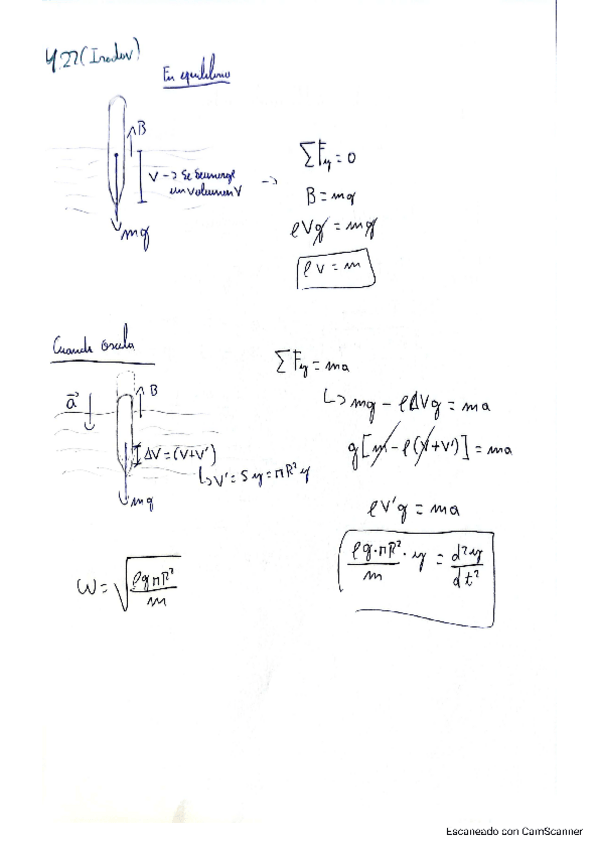 4.27 (Irodov)
En equilibrio
B
V → Se sumerge
un volumen V
mg
→
ΣFy = 0
B = mg
ρVg = mg
ρV = m
Cuando oscila
a⃗
B
ΔV = (V+V')
↳ V' = Sy = πR²y
mg
ΣFy = ma
↳ mg − ρΔVg = ma
g[m − ρ(V+V')] = ma
ρV'g = ma
ρg·πR²/m · y = d²y/dt²
ω = √(ρgπR²/m)
Escaneado con CamScanner